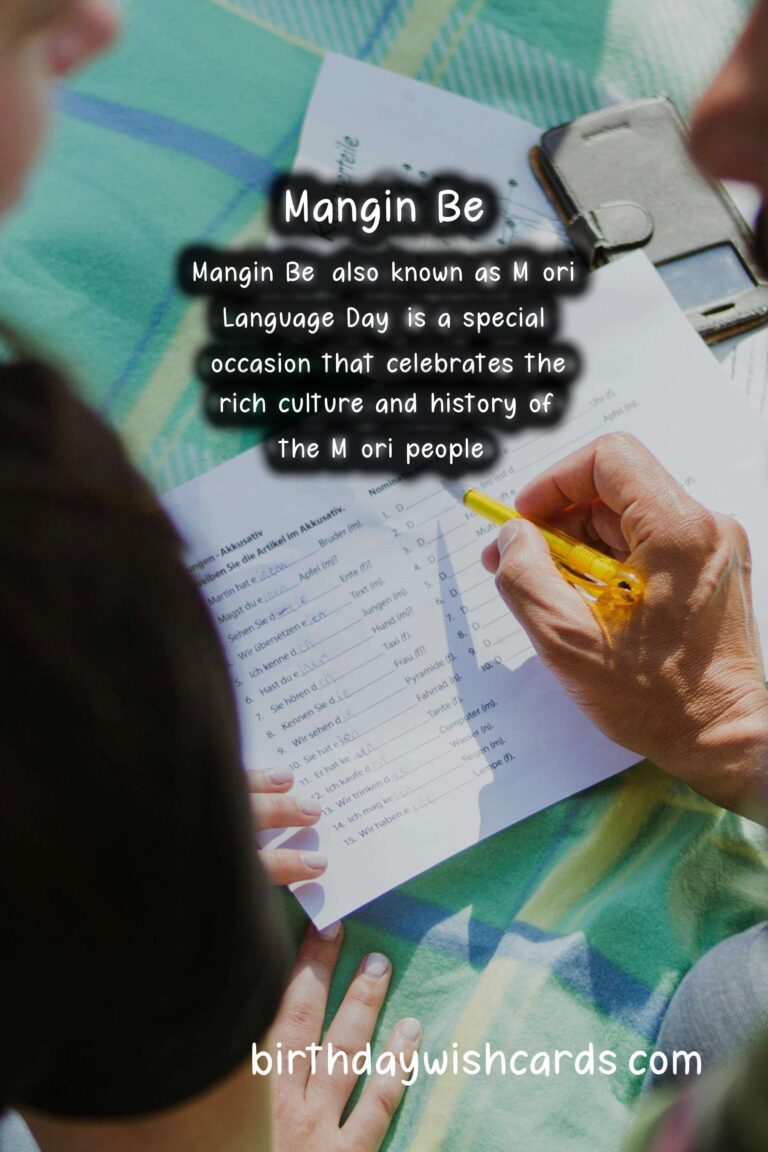 Mangin Be
Mangin Be also known as M ori
Language Day is a special
occasion that celebrates the
rich culture and history of
the M ori people
Uhr (f).
Apfel (m).
ungen - Akkusativ
reiben Sie die Artikel im Akkusativ.
Martin hat e inen Bruder (m).
Magst du e Apfel (m)?
Sehen Sie d Ente (f)?
Wir übersetzen e Text (m).
5. Ich kenne d Jungen (m).
6. Hast du e inen Hund (m)?
7. Sie hören d Taxi (f).
8. Kennen Sie d ie Frau (f)?
9. Wir sehen d ie Pyramide (f).
10. Sie hat e Fahrrad (n).
11. Er hat ke Tante (f).
12. Ich kaufe d Computer (m).
13. Wir trinken d Wasser (n).
14. Ich mag ke Regen (m).
15. Wir haben e ine Lampe (f).
1. D
2. D
3. D
4. D
5. D
6. D
7. D
8. D
9. D
10. D
birthdaywishcards com